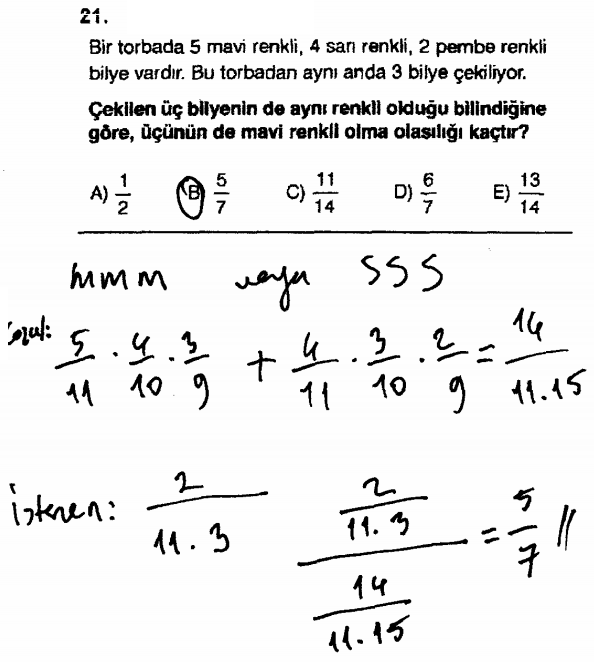 21.
Bir torbada 5 mavi renkli, 4 sarı renkli, 2 pembe renkli
bilye vardır. Bu torbadan aynı anda 3 bilye çekiliyor.
Çekilen üç bilyenin de aynı renkli olduğu bilindiğine
göre, üçünün de mavi renkli olma olasılığı kaçtır?
A) 1/2 B) 5/7 C) 11/14 D) 6/7 E) 13/14
mmm veya SSS
5/11 . 4/10 . 3/9 + 4/11 . 3/10 . 2/9 = 14/11.15
istenen: 2/11.3 (2/11.3)/(14/11.15) = 5/7 //